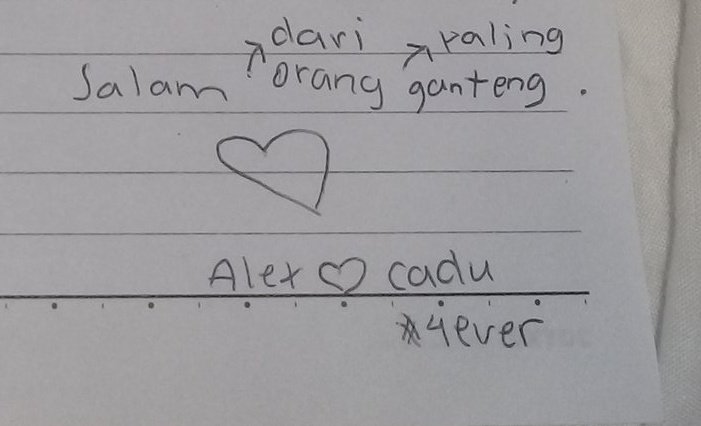 dari paling
Salam orang ganteng .
Alex ♡ cadu
4ever